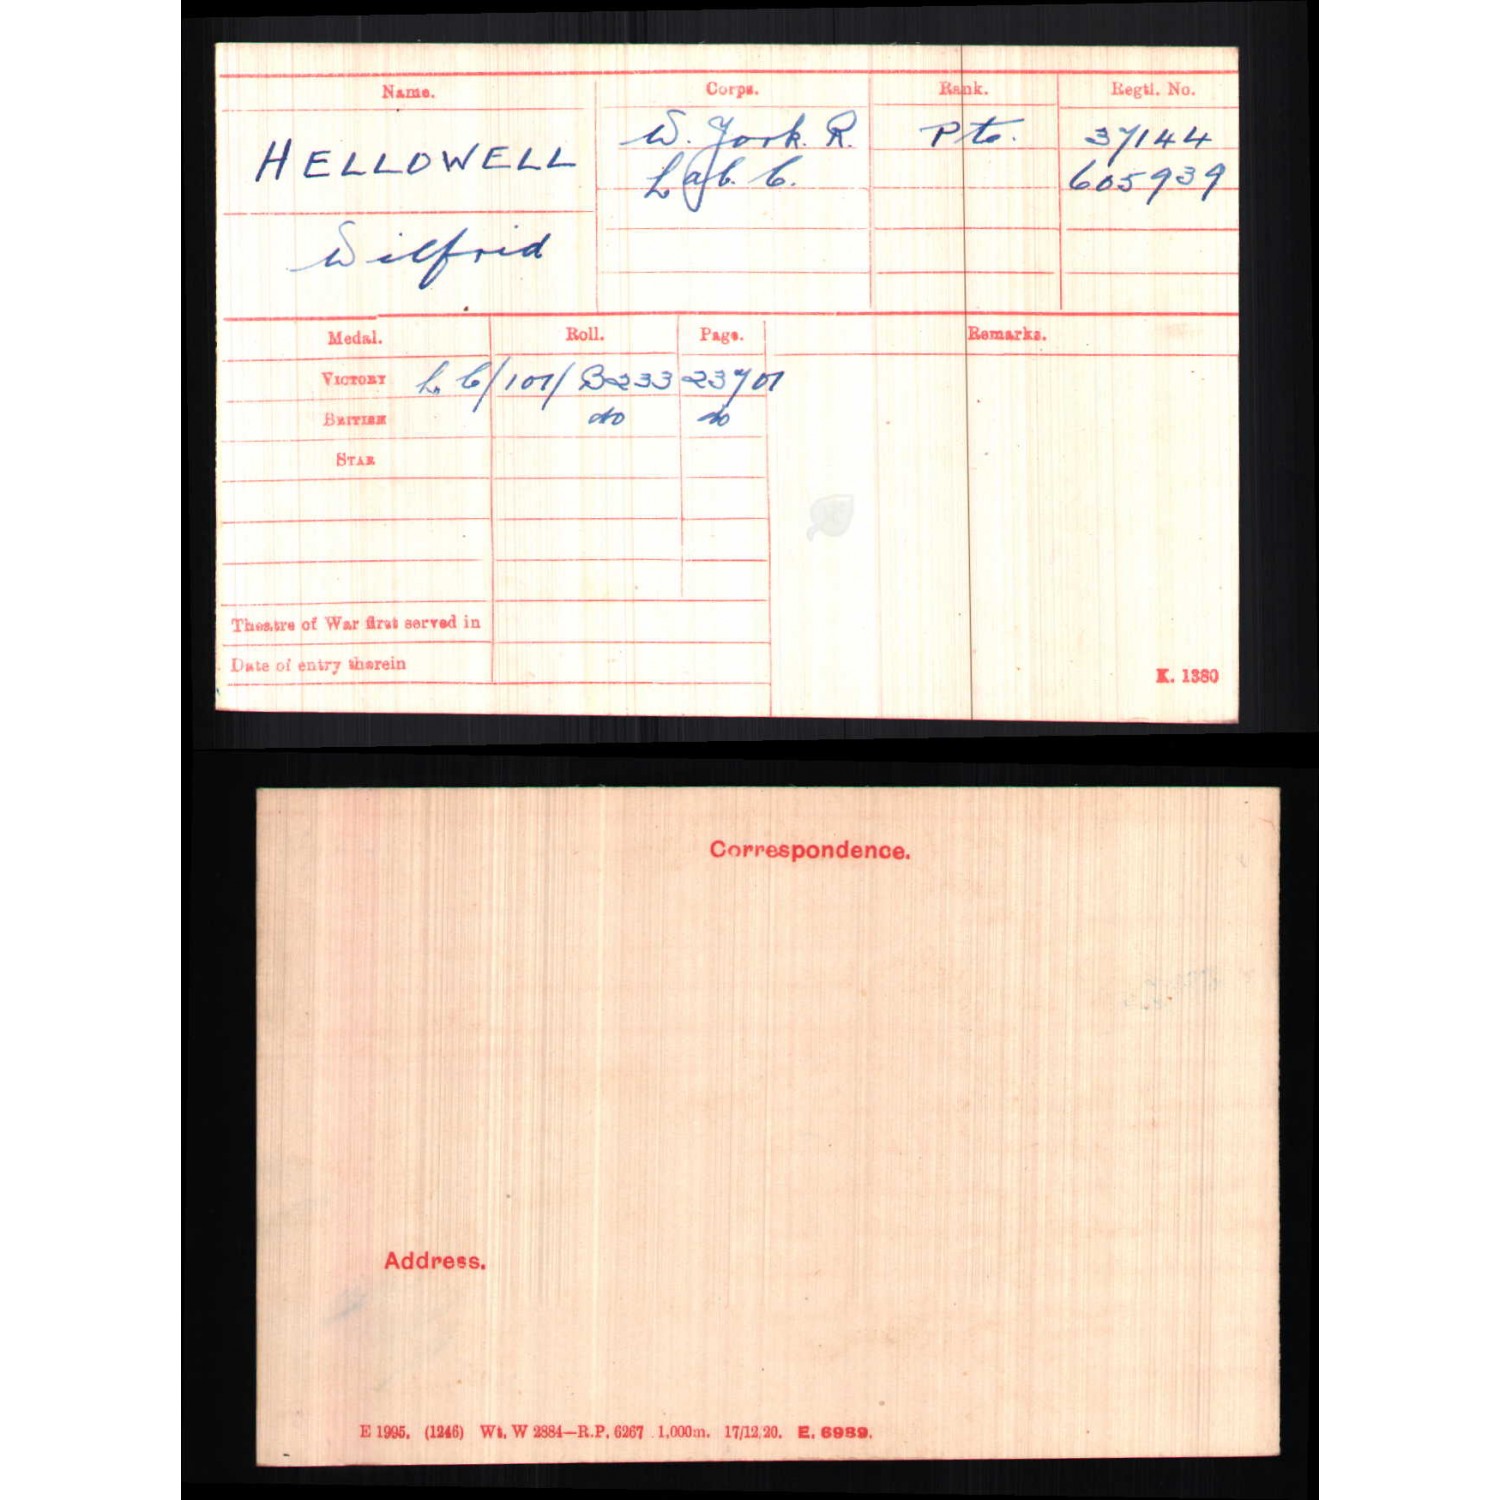 Name. Corps. Rank. Regtl. No.
HELLOWELL W. York. R. Pte. 37144
Lab. C. 605939
Wilfrid
Medal. Roll. Page. Remarks.
VICTORY L C/101/B233 23701
BRITISH do do
STAR
Theatre of War first served in
Date of entry therein
K. 1380
Correspondence.
Address.
E 1995. (1246) Wt. W 2884—R.P. 6267 1,000m. 17/12/20. E. 6989.